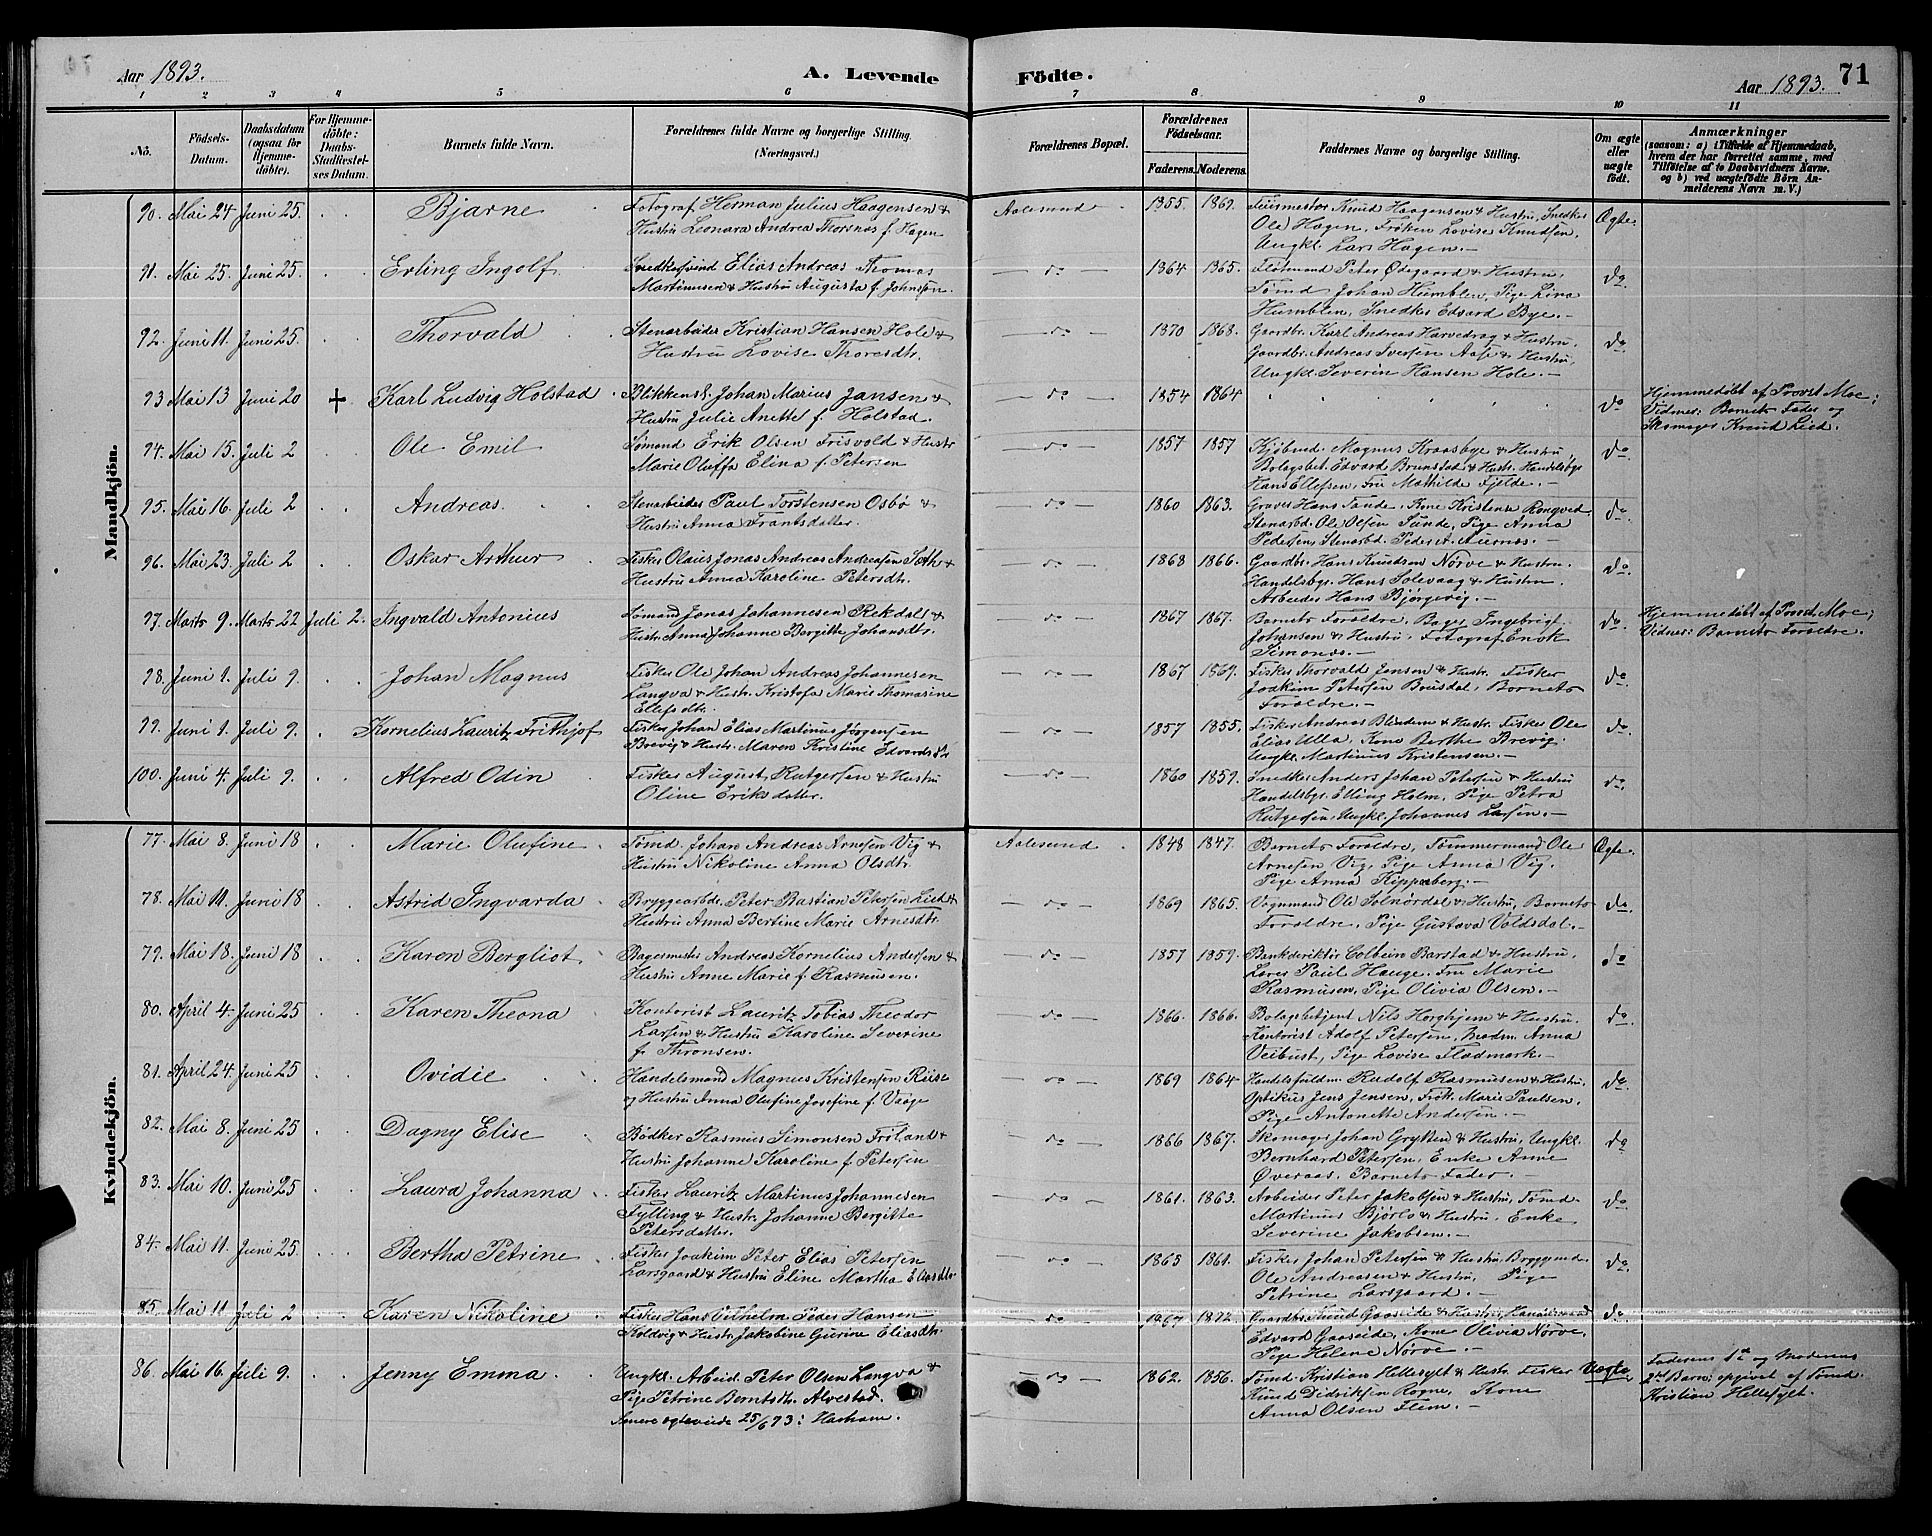 Aar 1893.
A. Levende Födte.
Aar 1893.
71
1 2 3 4 5 6 7 8 9 10 11
No.
Födsels-
Datum.
Daabsdatum
(ogsaa for
Hjemme-
döbte).
For Hjemme-
döbte:
Daabs-
Stadfæstel-
ses Datum.
Barnets fulde Navn.
Forældrenes fulde Navne og borgerlige Stilling.
(Næringsvei.)
Forældrenes Bopæl.
Forældrenes
Födselsaar.
Faderens. Moderens.
Faddernes Navne og borgerlige Stilling.
Om ægte
eller
uægte
födt.
Anmærkninger
(saasom: a) i Tilfælde af Hjemmedaab,
hvem der har forrettet samme, med
Tilföielse af to Daabsvidners Navne.
og b) ved uægtefödte Börn An-
melderens Navn m. V.)
Mandkjön.
90. Mai 24 Juni 25. Bjarne Fotograf Herman Julius Haagensen & Aalesund 1855. 1869. Knud Haagensen & Hustru, Snedker Ægte.
Hustru Leonara Andrea Thorsnas f. Hagen Ole Hagen, Frøken Lovise Knudsen,
Ungkl. Lars Hagen.
91. Mai 25. Juni 25. Erling Ingolf Snedkersvend Elias Andreas Thomas do 1864 1865. Peter Ødegaard & Hustru, do
Martinusen & Hustru Augusta f. Johnssen. Tømd Johan Humblen, Pige Lina
Humblen, Snedker Edvard Bye.
92. Juni 11. Juni 25. Thorvald Stenarbeider Kristian Hansen Hole & do 1870 1868. Gaardbr. Karl Andreas Harvedrag & Hustru, do
Hustru Lovise Thoresdtr. Gaardbr. Andreas Iversen Aase & Hustru,
Ungkl. Severin Hansen Hole.
93 Mai 13 Juni 20 † Karl Ludvig Holstad Blikkensl. Johan Marius Jansen & do 1854 1864 do Hjemmedøbt af Provst Moe;
Hustru Julie Anette f. Holstad. Vidner: Barnets Fader og
Skomager Knud Lied.
94. Mai 15. Juli 2 Ole Emil Sømand Erik Olsen Frisvold & Hustr. do 1857 1857 Kjøbmd. Magnus Kraasbye & Hustru, do
Marie Oluffa Elina f. Petersen Edvard Brunstad & Hustr. Handelsbgr.
Hans Ellefsen, Fru Mathilde Fjelde.
95. Mai 16. Juli 2 Andreas. Stenarbeider Paul Torstensen Osbø & do 1860 1863. Graver Hans Sande, Kone Kristense Rongved, do
Hustru Anna Frantsdatter. Stenarbd. Ole Olsen Sunde, Pige Anna
Pedersen, Stenarbd. Peder A. Aurnes.
96. Mai 23. Juli 2 Oskar Arthur Fisker Olaus Jonas Andreas Andreasen Sæth & do 1868 1866. Gaardbr. Hans Knudsen Nørve & Hustru. do
Hustru Anna Karoline Petersdtr. Handelsbgr. Hans Solevaag & Hustru.
Arbeider Hans Bjørgevig.
97. Marts 9. Marts 22 Juli 2. Ingvald Antonius Sømand Jonas Johannesen Rekdal & do 1867 1867. Barnets Forældre, Bager Ingebrigt do Hjemmedøbt af Provst Moe;
Hustr. Anna Johanne Bergitte Johansdtr. Johansen & Hustru, Fotograf Enok Vidner: Barnets Forældre.
Simones.
98. Juni 1. Juli 9. Johan Magnus Fisker Ole Johan Andreas Johannesen do 1867 1869. Fisker Thorvald Jensen & Hustr. Fisker do
Langva & Hustr. Kristofa Marie Thomasine Joakim Petersen Brusdal, Barnets
Ellefsdtr. Forældre.
99. Juni 1. Juli 9. Kornelius Lauritz Frithjof Fisker Johan Elias Martinus Jørgensen do 1857 1855. Fisker Andreas Blindem & Hustr. Fisker Ole do
Brevig & Hustr. Maren Kristine Edvardsdtr. Elias Ulla, Kone Berthe Brevig.
Ungkl. Martinus Kristensen.
100. Juni 4. Juli 9. Alfred Odin Fisker August Rutgersen & Hustru do 1860 1859. Snedker Anders Johan Petersen & Hustru do
Oline Eriksdatter. Handelsbgr. Elling Holm, Pige Petra
Rutgersen, Ungkl. Johannes Larsen.
Kvindekjön.
77. Mai 8. Juni 18 Marie Olufine Tømd. Johan Andreas Arnesen Vig & Aalesund 1848 1847. Barnets Forældre, Tømmermand Ole Ægte.
Hustru Nikoline Anna Olsdtr. Arnesen Vig, Pige Anna Vig.
Pige Anna Kipperberg.
78. Mai 11. Juni 18 Astrid Ingvarda Bryggearbdr. Peter Bastian Petersen Lied & do 1869 1865. Vognmand Ole Solnørdal & Hustru, Barnets do
Hustru Anna Bertine Marie Arnesdtr. Forældre, Pige Gustava Valdsdal.
79. Mai 18. Juni 18 Karen Bergliot Bagermester Andreas Kornelius Andersen & do 1857 1859. Bankdirektør Colbein Barstad & Hustru, do
Hustru Anne Marie f. Rasmusen. Lærer Paul Hauge. Fru Marie
Rasmusen, Pige Olivia Olsen.
80. April 4. Juni 25 Karen Theona Kontorist Lauritz Tobias Theodor do 1866. 1866. Nils Horghjem & Hustru. do
Larsen & Hustru Karoline Severine Kontorist Adolf Petersen, Madm. Anna
f. Thronsen. Veibust, Pige Lovise Fladmark.
81. April 24. Juni 25 Ovidie Handelsmand Magnus Kristensen Riise do 1869 1864 Handelsfuldm. Rudolf Rasmusen & Hustru, do
og Hustru Anna Olufine Josefine f. Vaage Optikus Jens Jensen, Frøk. Marie Paulsen,
Pige Antonette Andersen.
82. Mai 8. Juni 25 Dagny Elise Bødker Rasmus Simonsen Frøland & do 1866 1867. Skomager Johan Grytten & Hustru, Ungkl. do
Hustru Johanne Karoline f. Petersen Bernhard Petersen, Enke Anne
Øveraas, Barnets Fader.
83. Mai 10. Juni 25 Laura Johanna Fisker Lauritz Martinus Johannesen do 1861. 1863. Arbeider Peter Jakobsen & Hustru, Tømd. do
Fylling & Hustr. Johanne Bergitte Martinus Bjørlo & Hustru, Enke
Petersdatter. Severine Jakobsen.
84. Mai 11. Juni 25. Bertha Petrine Fisker Joakim Peter Elias Petersen do 1863 1861. Fisker Johan Petersen & Hustru, Bryggmd. do
Larsgaard & Hustru Eline Martha Eliasdtr. Ole Andreasen & Hustru, Pige
Petrine Larsgaard.
85. Mai 11 Juli 2 Karen Nikoline Fisker Hans Vilhelm Peder Hansen do 1867 1872. Gaardbr. Knud Gaaseide & Hustru, Handelsmand do
Koldvig & Hustr. Jakobine Gurine Eliasdtr. Edvard Gaaseide, Kone Olivia Nørve,
Pige Helene Nørve.
86. Mai 16. Juli 9. Jenny Emma Ungkl. Arbeid. Peter Olsen Langva & do 1862. 1856. Tømd. Kristian Hellesylt & Hustr. Fisker Uægte Faderens 1te og Moderens
Pige Petrine Berntsdtr. Alvestad. Knud Didriksen Rogne, Kone 2det Barn; opgivet af Tømd.
Senere ægteviede 25/6 93 i Harham. Anna Olsen Flem. Kristian Hellesylt.